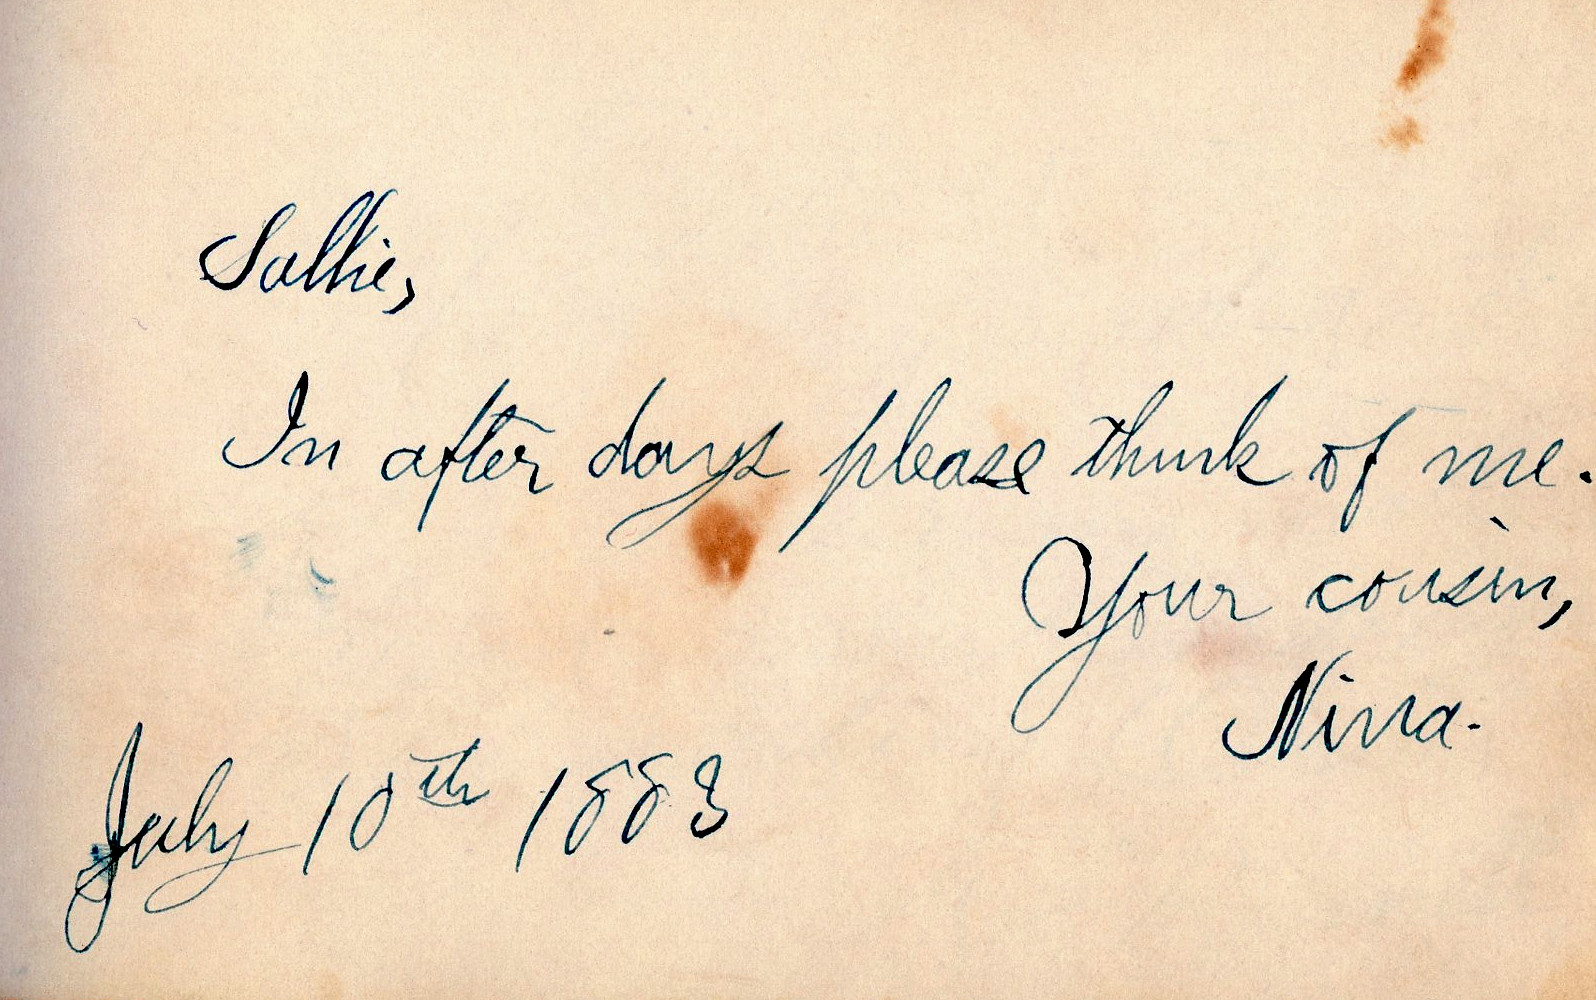 Sallie,
In after days please think of me.
Your cousin,
Nina.
July 10th 1883